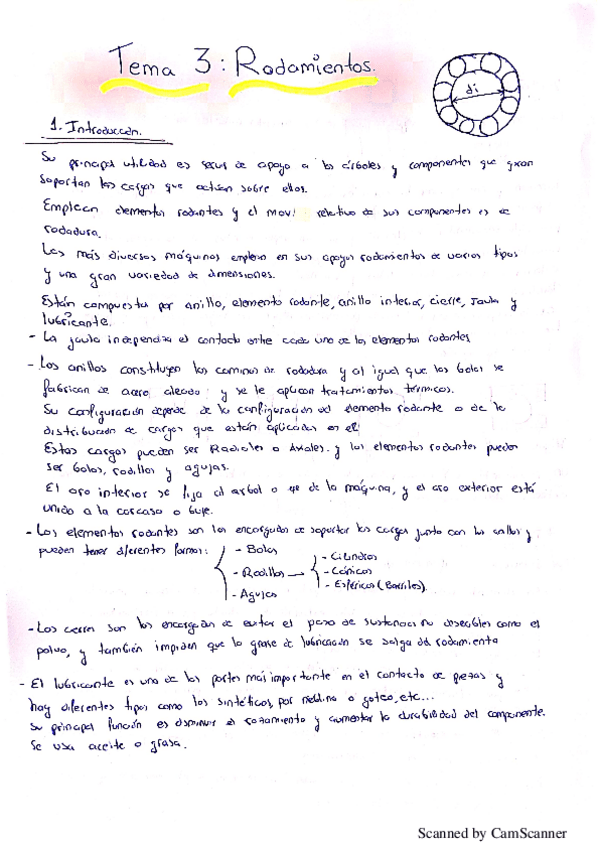 Tema 3: Rodamientos.
di
1. Introducción.
Su principal utilidad es servir de apoyo a los árboles y componentes que giran
Soportan las cargas que actúan sobre ellos.
Emplean elementos rodantes y el movi relativo de sus componentes es de
rodadura.
Las más diversas máquinas emplean en sus apoyos rodamientos de varios tipos
y una gran variedad de dimensiones.
Están compuesta por anillo, elemento rodante, anillo interior, cierre, Jaula y
lubricante.
- La jaula independiza el contacto entre cada uno de los elementos rodantes
- Los anillos constituyen los caminos de rodadura y al igual que las bolas se
fabrican de acero aleado y se le aplican tratamientos térmicos.
Su configuración depende de la configuración del elemento rodante o de la
distribución de cargas que están aplicadas en el
Estas cargas pueden ser Radiales o Axiales. y los elementos rodantes pueden
ser bolas, rodillos y agujas.
El aro interior se fija al arbol o eje de la máquina, y el aro exterior está
unido a la carcasa o buje.
- Los elementos rodantes son los encargados de soportar las cargas junto con los anillos y
pueden tener diferentes formas:
- Bolas
- Rodillos →
- Agujas
- Cilindros
- Cónicos
- Esféricos (Barriles)
- Los cierres son los encargados de evitar el paso de sustancias no deseables como el
polvo, y también impiden que la grasa de lubricación se salga del rodamiento
- El lubricante es una de las partes más importante en el contacto de piezas y
hay diferentes tipos como los sintéticos, por neblina o goteo, etc...
Su principal función es disminuir el rozamiento y aumentar la durabilidad del componente.
Se usa aceite o grasa.
Scanned by CamScanner